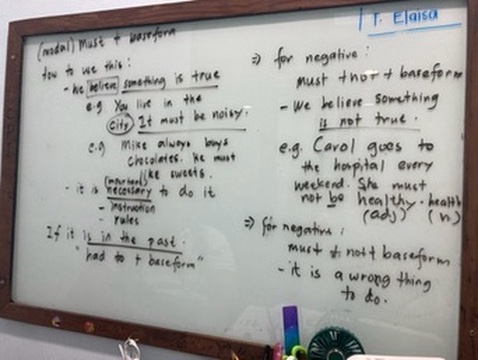 T. Elaisa
(modal) Must + baseform
How to use this:
- We believe something is true
e.g You live in the
city. It must be noisy.
e.g Mike always buys
chocolates. He must
like sweets.
(important)
- it is necessary to do it
- instruction
- rules
If it is in the past.
"had to + baseform"
⇒ for negative:
must + not + baseform
- We believe something
is not true.
e.g. Carol goes to
the hospital every
weekend. She must
not be healthy. health
(adj) (n.)
⇒ for negative:
must + not + baseform
- it is a wrong thing
to do.